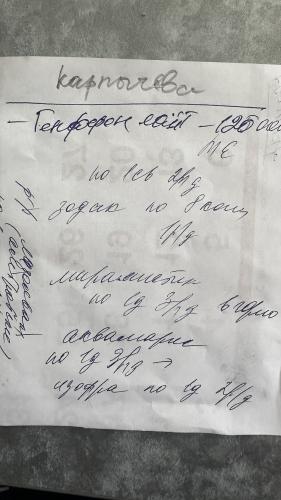 карпычева
- Генферон лайт - 125000
МЕ
по 1св 2р/д
зодак по 8 кап
1р/д
мирамистин
по 1д 3р/д в горло
аквамарис
по 1д 3р/д →
изофра по 1д 2р/д
р/р